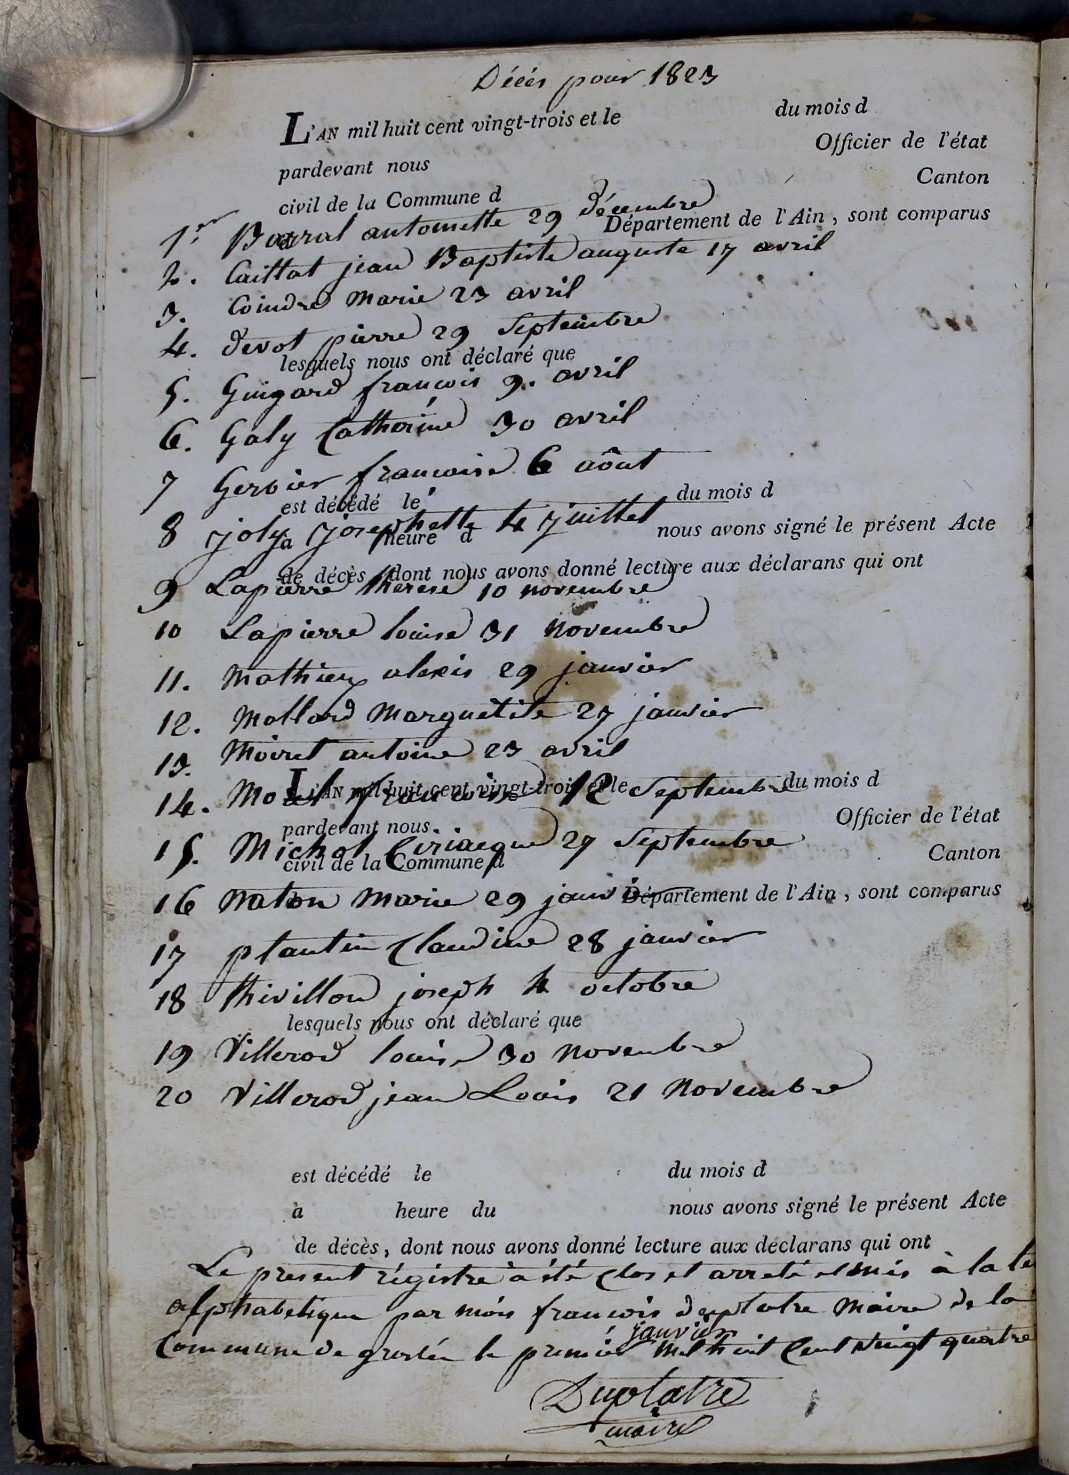 Décès pour 1823
L'AN mil huit cent vingt-trois et le du mois d
pardevant nous Officier de l'état
civil de la Commune d Canton
1er Barral antoinette 29 décembre
d Département de l'Ain, sont comparus
2. Caillat jean Baptiste auguste 17 avril
3. Coindre Marie 23 avril
4. devot pierre 29 Septembre
lesquels nous ont déclaré que
5. Guigard francois 9. avril
6. Galy Catherine 30 avril
7 Gerbier francoise 6 août
est décédé le du mois d
8 joly josephette 4 juillet
à heure d nous avons signé le présent Acte
de décès, dont nous avons donné lecture aux déclarans qui ont
9 Lapierre therese 10 novembre
10 Lapierre louise 31 Novembre
11. Mathieux alexis 29 janvier
12. Mollard Marguetite 27 janvier
13. Moiret antoine 23 avril
L'AN mil huit cent vingt-trois et le du mois d
14. Morel francois 12 Septembre
pardevant nous Officier de l'état
15. Michel Ciriacque 27 Septembre
civil de la Commune d Canton
16 Naton Marie 29 janvier
Département de l'Ain, sont comparus
17 plantin Claudine 28 janvier
18 thivillon joseph 4 octobre
lesquels nous ont déclaré que
19 Villerod louise 30 Novembre
20 Villerod jean Louis 21 Novembre
est décédé le du mois d
à heure du nous avons signé le présent Acte
de décès, dont nous avons donné lecture aux déclarans qui ont
Le present régistre à été Clos et arreté et mis à la
alphabetique par mois francois duplatre Maire de la
janvier
Commune de groslée le premier mil huit Cent vingt quatre
Duplatre
maire